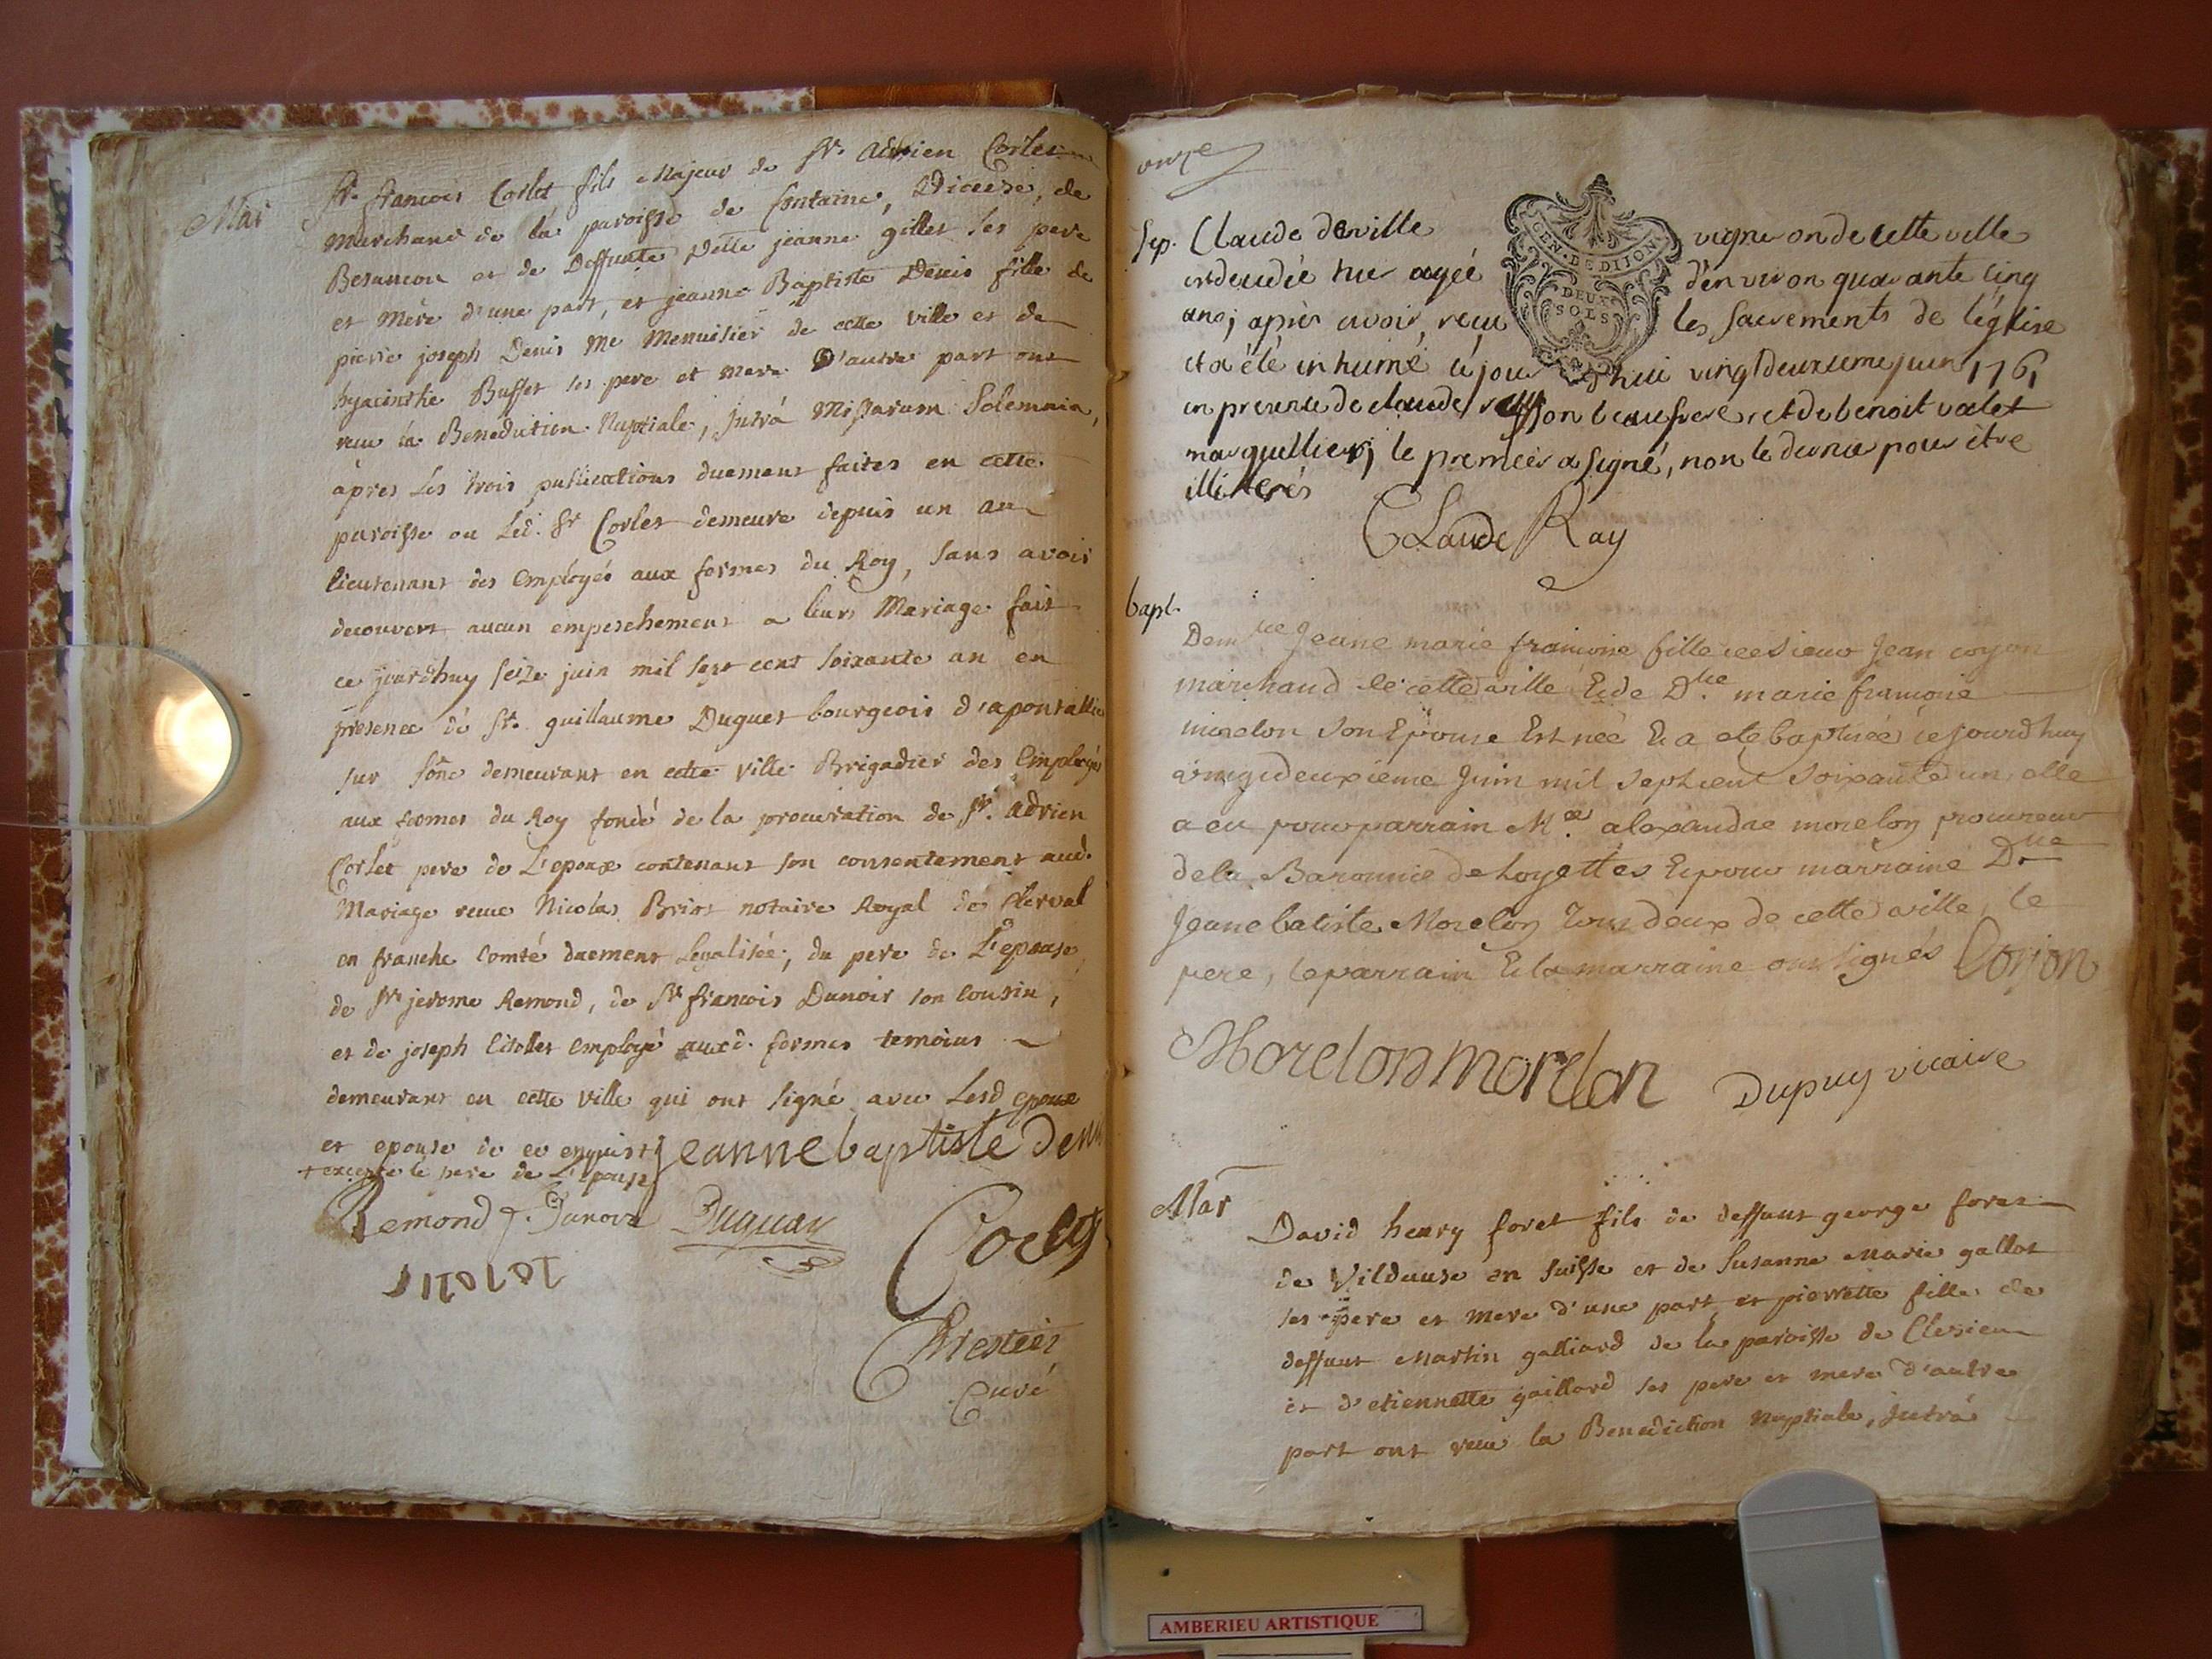 Mar
Sr. francois Corlet fils Majeur de Sr. Adrien Corlet
Marchand de la paroisse de fontaine, Diocese, de
Besancon et de Deffunte Delle jeanne gillet ses pere
et Mere d'une part, et jeanne Baptiste Denis fille de
pierre joseph Denis Me Menuisier de cette Ville et de
hyacinthe Buffet ses pere et mere D'autre part ont
recu la Benediction Nuptiale, Intrá Missarum Solemnia,
àpres Les trois publications duement faites en cette
paroisse ou Led. Sr Corlet demeure depuis un an
lieutenant des Employés aux fermes du Roy, sans avoir
decouvert aucun empeschement a leur Mariage fait
ce jourdhuy seize juin mil sept cent soixante un en
presence de Sr. guillaume Duguet bourgeois de pontallie
sur sône demeurant en cette Ville Brigadier des Employés
aux fermes du Roy fondé de la procuration de Sr. adrien
Corlet pere de L'epoux contenant son consentement aud.
Mariage recue Nicolas Briot notaire Royal de Clerval
en franche Comté duement Legalisée, du pere de L'epouse
de Sr jerome Remond, de Sr francois Dunoir son cousin,
et de joseph employé auxd. fermes temoins
demeurant en cette Ville qui ont signé avec Lesd epoux
et epouse de ce enquis jeanne baptiste denis
+ excepte le pere de L'epouse
Remond f. Dunoir Duguay
Corlet
Curé
onze
Sep. Claude deville vigneron de cette ville
est decedée hier agée d'environ quarante cinq
ans; après avoir recu les sacrements de l'église
et a été inhumé àjourdhui vingtdeuxieme juin 1761
en presence de claude son beaufrere, et de benoit valet
marguillier; le premier a signé, non le dernier pour être
illiterés
CLaude Ray
bapt.
Demlle Jeane marie francoise fille de sieur Jean coyon
marchand de cette ville Et de Dlle marie francoise
morelon son Epouse Est née Et a eté baptisée cejourdhuy
vingtdeuxieme Juin mil sept cent soixante un, elle
a eu pour parrain Me alexandre morelon procureur
de la Baronnie de Loyettes Et pour marraine Dlle
Jeane batiste Morelon Tous deux de cette ville, le
pere, le parrain Et la marraine ont signés Corion
Morelon Morelon Dupuy vicaire
Mar
David henry foret fils de deffunt george foret
de Vilduuse en suisse et de Susanne Marie gallot
ses pere et mere d'une part et pierrette fille de
deffunt Martin galliard de la paroisse de Clesieu
et d'etiennette gaillard ses pere et mere d'autre
part ont recu la Benediction Nuptiale, Intrá
GEN. DE DIJON
DEUX
SOLS
AMBERIEU ARTISTIQUE